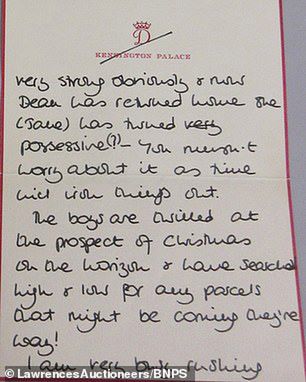 D
KENSINGTON PALACE
very strong obviously & now
Dean has returned home she
(Jane) has turned very
possessive(?) - You mustn't
worry about it as time
will iron things out.
The boys are thrilled at
the prospect of Christmas
on the horizon & have searched
high & low for any parcels
that might be coming they're
way!
I am very busy rushing
© LawrencesAuctioneers/BNPS